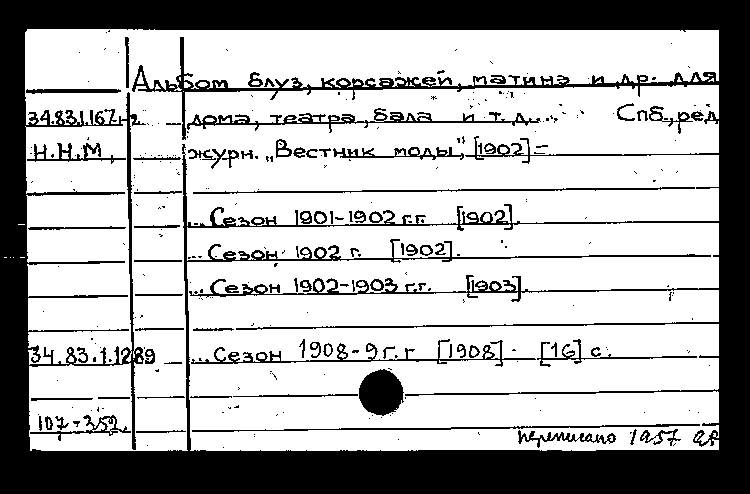 Альбом блуз, корсажей, матинэ и др. для
34.83.1.167.1-2 дома, театра, бала и т.д... Спб., ред
Н.Н.М, журн. „Вестник моды", [1902] =
... Сезон 1901-1902 г.г. [1902].
... Сезон 1902 г. [1902].
... Сезон 1902-1903 г.г. [1903].
34.83.1.1289 ... Сезон 1908-9 г.г [1908] · [16] с.
107-352.
переписано 1957